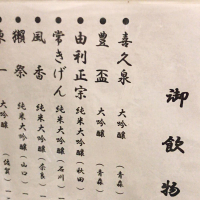 御飲物
喜久泉 大吟醸 (青森)
豊盃 大吟醸 (青森)
由利正宗 純米大吟醸 (秋田)
常きげん 純米大吟醸 (石川)
風香 純米大吟醸 (奈良)
獺祭 純米大吟醸 (山口)
東一 大吟醸 (佐賀)